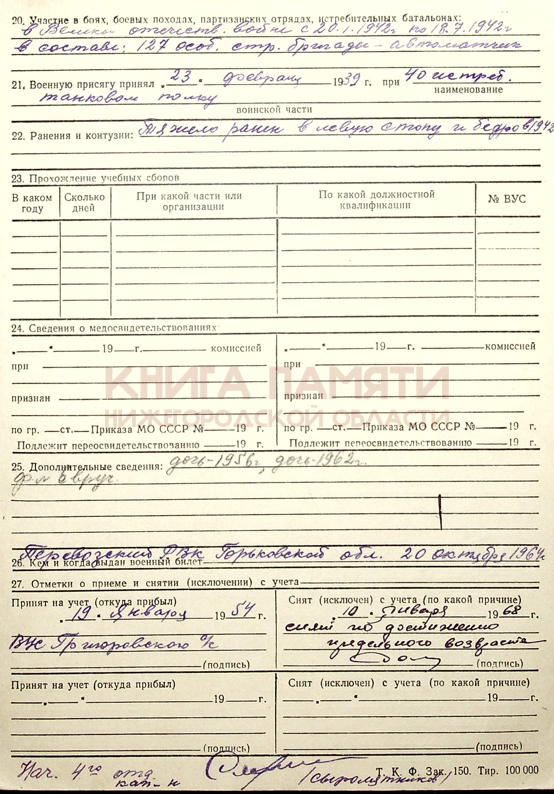 20. Участие в боях, боевых походах, партизанских отрядах, истребительных батальонах:
в Великой отечеств. войне с 20.1.1942г по 18.7.1942г
в составе: 127 особ. стр. бригады – автоматчик
21. Военную присягу принял „23“ февраля 1939 г. при 40 истреб.
наименование
танковом полку
воинской части
22. Ранения и контузии: Тяжело ранен в левую стопу и бедро в 1942
23. Прохождение учебных сборов
В каком году Сколько дней При какой части или организации По какой должностной квалификации № ВУС
24. Сведения о медосвидетельствованиях
„—“ — 19—г. — комиссией „—“ — 19—г. — комиссией
при при
признан признан
по гр. —ст.—Приказа МО СССР №— 19 г. по гр. —ст.—Приказа МО СССР №— 19 г.
Подлежит переосвидетельствованию — 19 г. Подлежит переосвидетельствованию — 19 г.
КНИГА ПАМЯТИ
НИЖЕГОРОДСКОЙ ОБЛАСТИ
25. Дополнительные сведения: дочь-1956г, дочь-1962г.
Перевозский РВК Горьковской обл. 20 октября 1964г
26. Кем и когда выдан военный билет
27. Отметки о приеме и снятии (исключении) с учета
Принят на учет (откуда прибыл) Снят (исключен) с учета (по какой причине)
„19“ Января 1954 г. „10“ Января 1968 г.
ВУС Григоровского с/с снят по достижению
предельного возраста
(подпись) (подпись)
Принят на учет (откуда прибыл) Снят (исключен) с учета (по какой причине)
„—“ — 19—г. „—“ — 19—г.
(подпись) (подпись)
Нач. 4го отд.
кап-н /Сыромятников/
Т. К. Ф. Зак. 150. Тир. 100 000